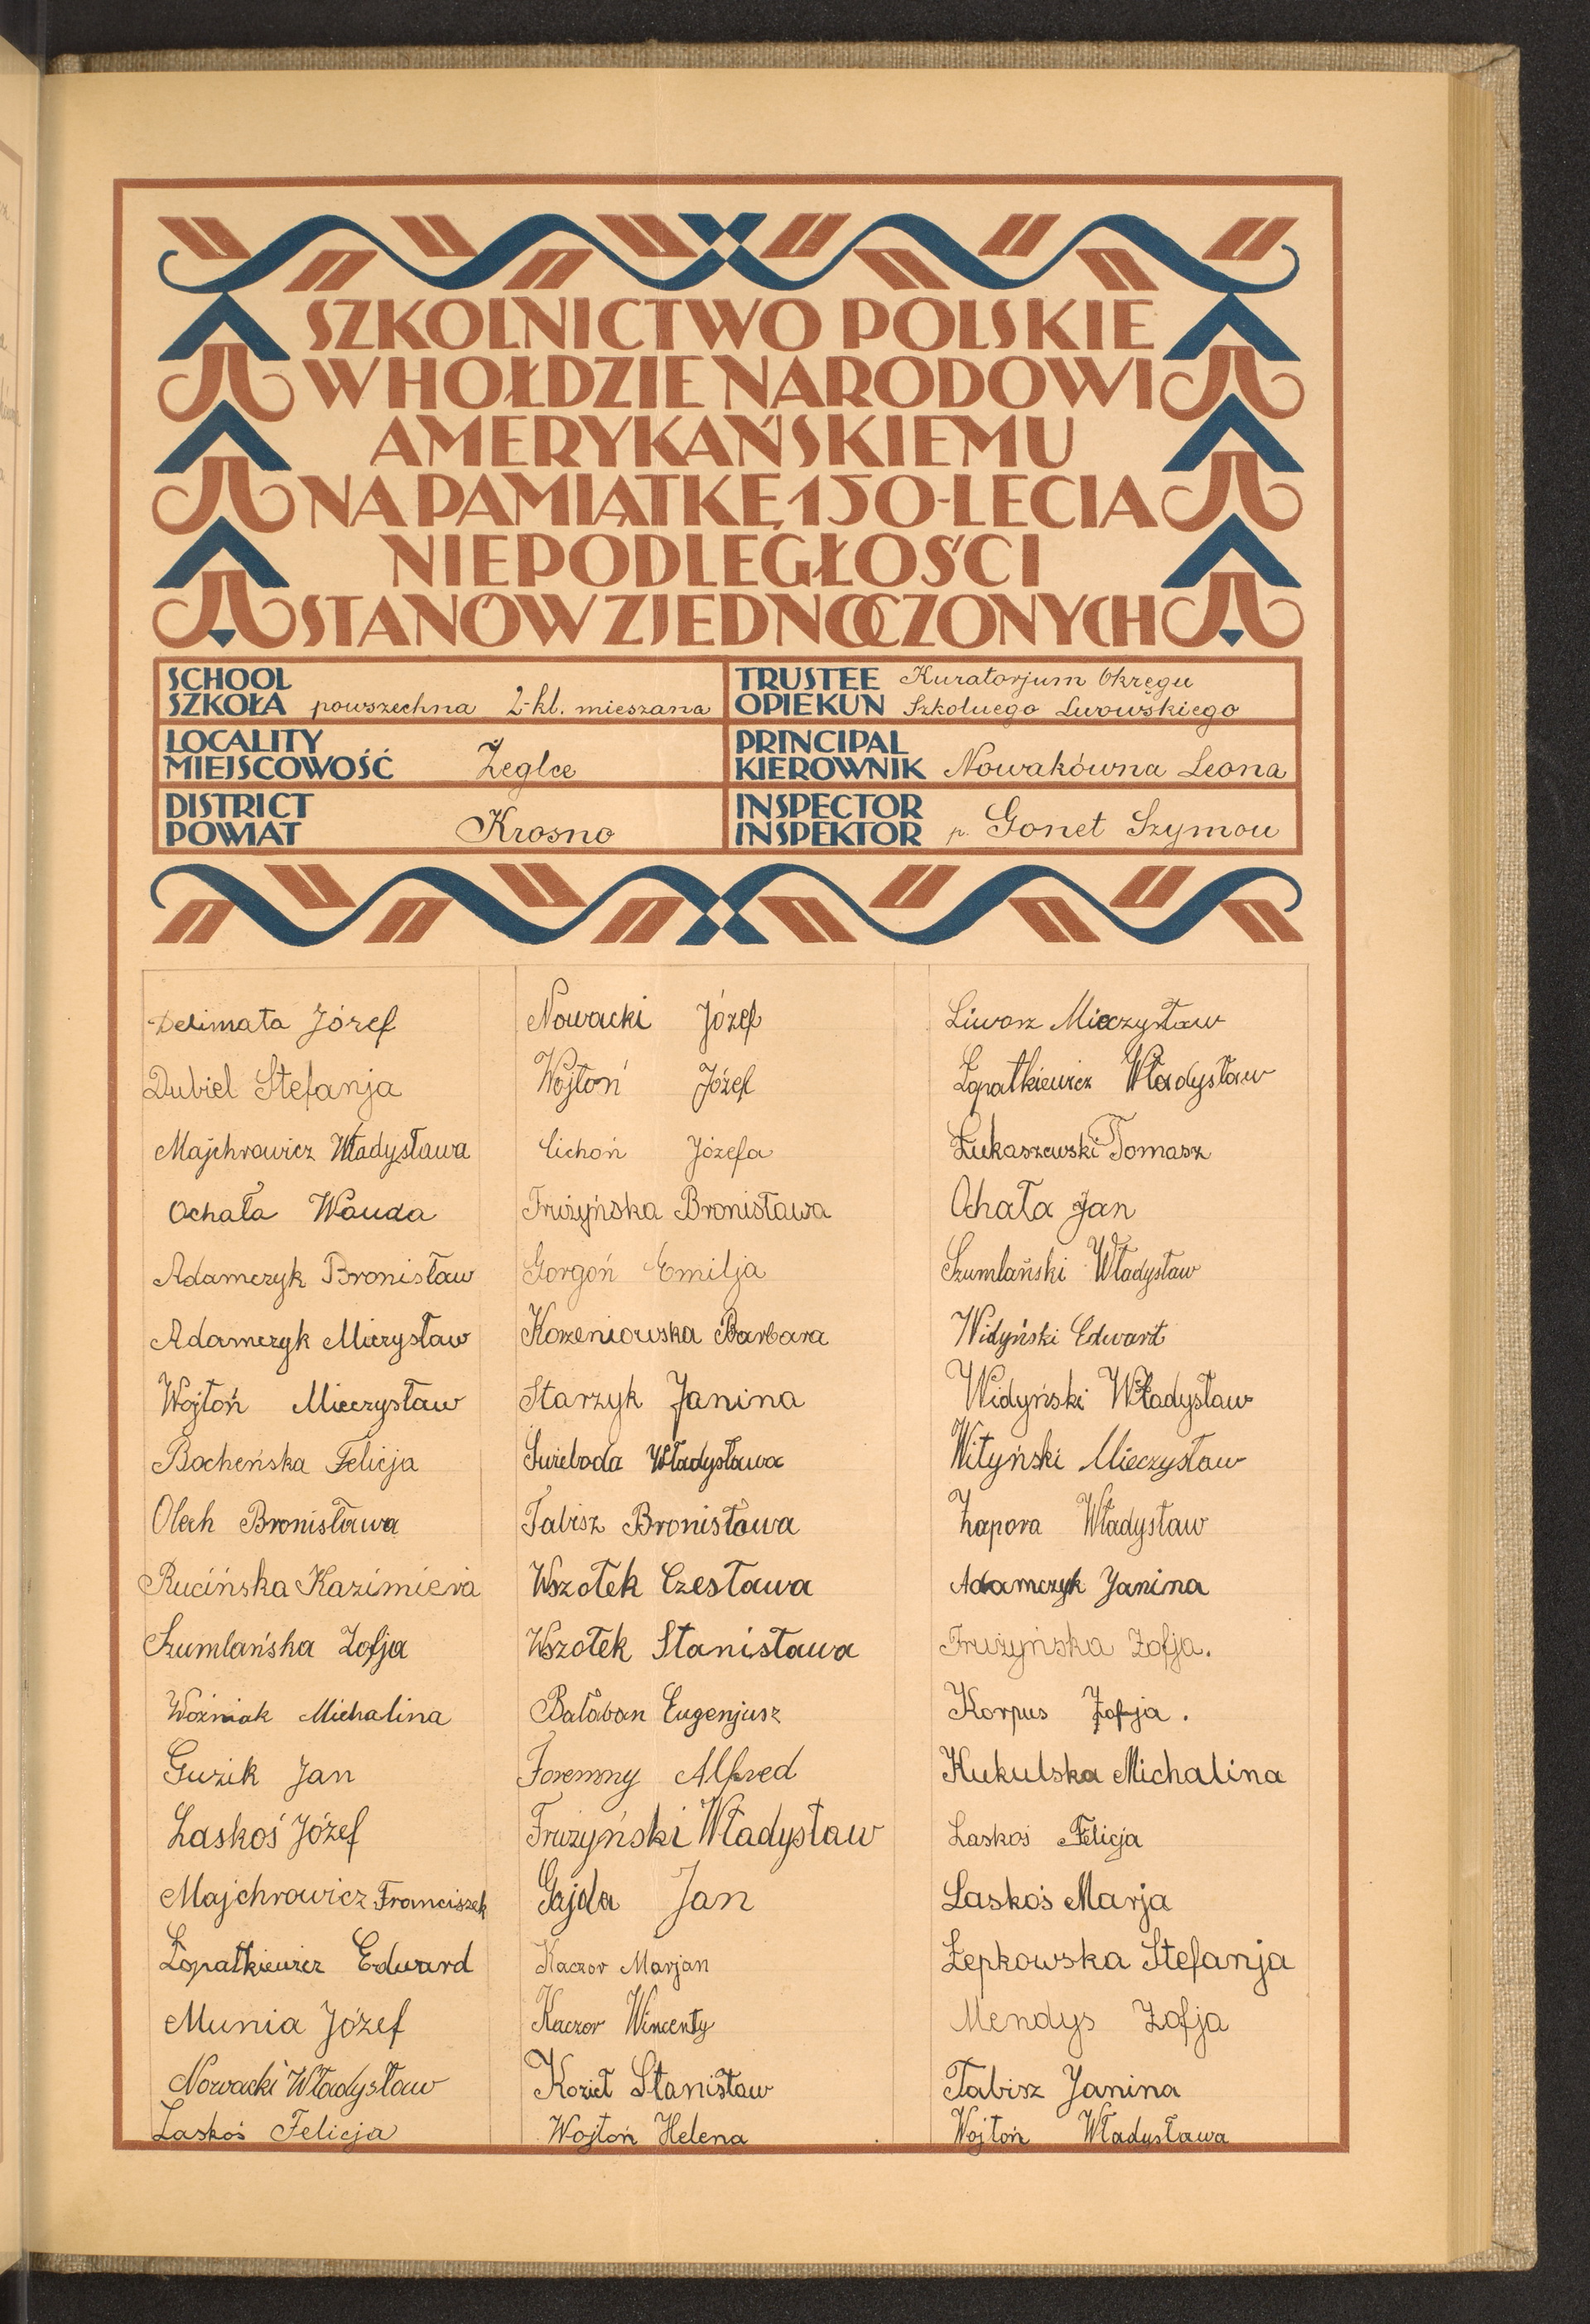 SZKOLNICTWO POLSKIE
W HOŁDZIE NARODOWI
AMERYKAŃSKIEMU
NA PAMIĄTKĘ 150-LECIA
NIEPODLEGŁOŚCI
STANÓW ZJEDNOCZONYCH
SCHOOL
SZKOŁA powszechna 2-kl. mieszana
TRUSTEE Kuratorjum Okręgu
OPIEKUN Szkolnego Lwowskiego
LOCALITY
MIEJSCOWOŚĆ Żeglce
PRINCIPAL
KIEROWNIK Nowakówna Leona
DISTRICT
POWIAT Krosno
INSPECTOR
INSPEKTOR p. Gonet Szymon
Delimata Józef
Dubiel Stefanja
Majchrowicz Władysława
Ochała Wanda
Adamczyk Bronisław
Adamczyk Mieczysław
Wojtoń Mieczysław
Bocheńska Felicja
Olech Bronisława
Rucińska Kazimiera
Szumlańska Zofja
Woźniak Michalina
Guzik Jan
Laskoś Józef
Majchrowicz Franciszek
Łopatkiewicz Edward
Munia Józef
Nowacki Władysław
Laskoś Felicja
Nowacki Józef
Wojtoń Józef
Cichoń Józefa
Frużyńska Bronisława
Gorgoń Emilja
Korzeniowska Barbara
Starzyk Janina
Świeboda Władysława
Tabisz Bronisława
Wszołek Czesława
Wszołek Stanisława
Bałaban Eugenjusz
Foremny Alfred
Frużyński Władysław
Gajda Jan
Kaczor Marjan
Kaczor Wincenty
Kozieł Stanisław
Wojtoń Helena
Liwosz Mieczysław
Łopatkiewicz Władysław
Łukaszewski Tomasz
Ochała Jan
Szumlański Władysław
Widyński Edward
Widyński Władysław
Wityński Mieczysław
Zapora Władysław
Adamczyk Janina
Frużyńska Zofja.
Korpus Zofja.
Kukulska Michalina
Laskoś Felicja
Laskoś Marja
Łepkowska Stefanja
Mendys Zofja
Tabisz Janina
Wojtoń Władysława